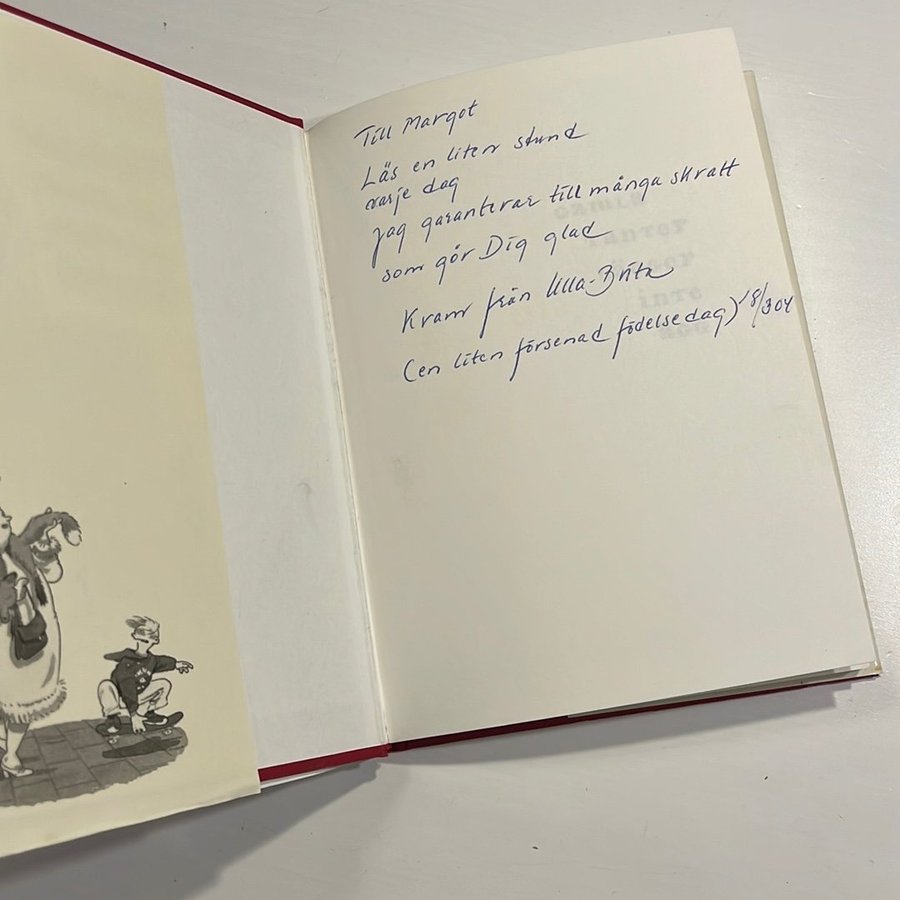 Till Margot
Läs en liten stund
varje dag
Jag garanterar till många skratt
som gör Dig glad
Kram från Ulla-Brita
(en liten försenad födelsedag) 18/3 04
TANTER
inte